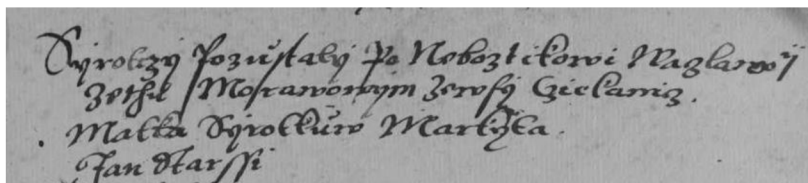 Syrotczy Pozustaly Po Neboztikowi Waglarowÿ
Zethu Morawowym Zewsy Czielaniz.
Matka Syrotkuw Martÿta.
Jan Starssi